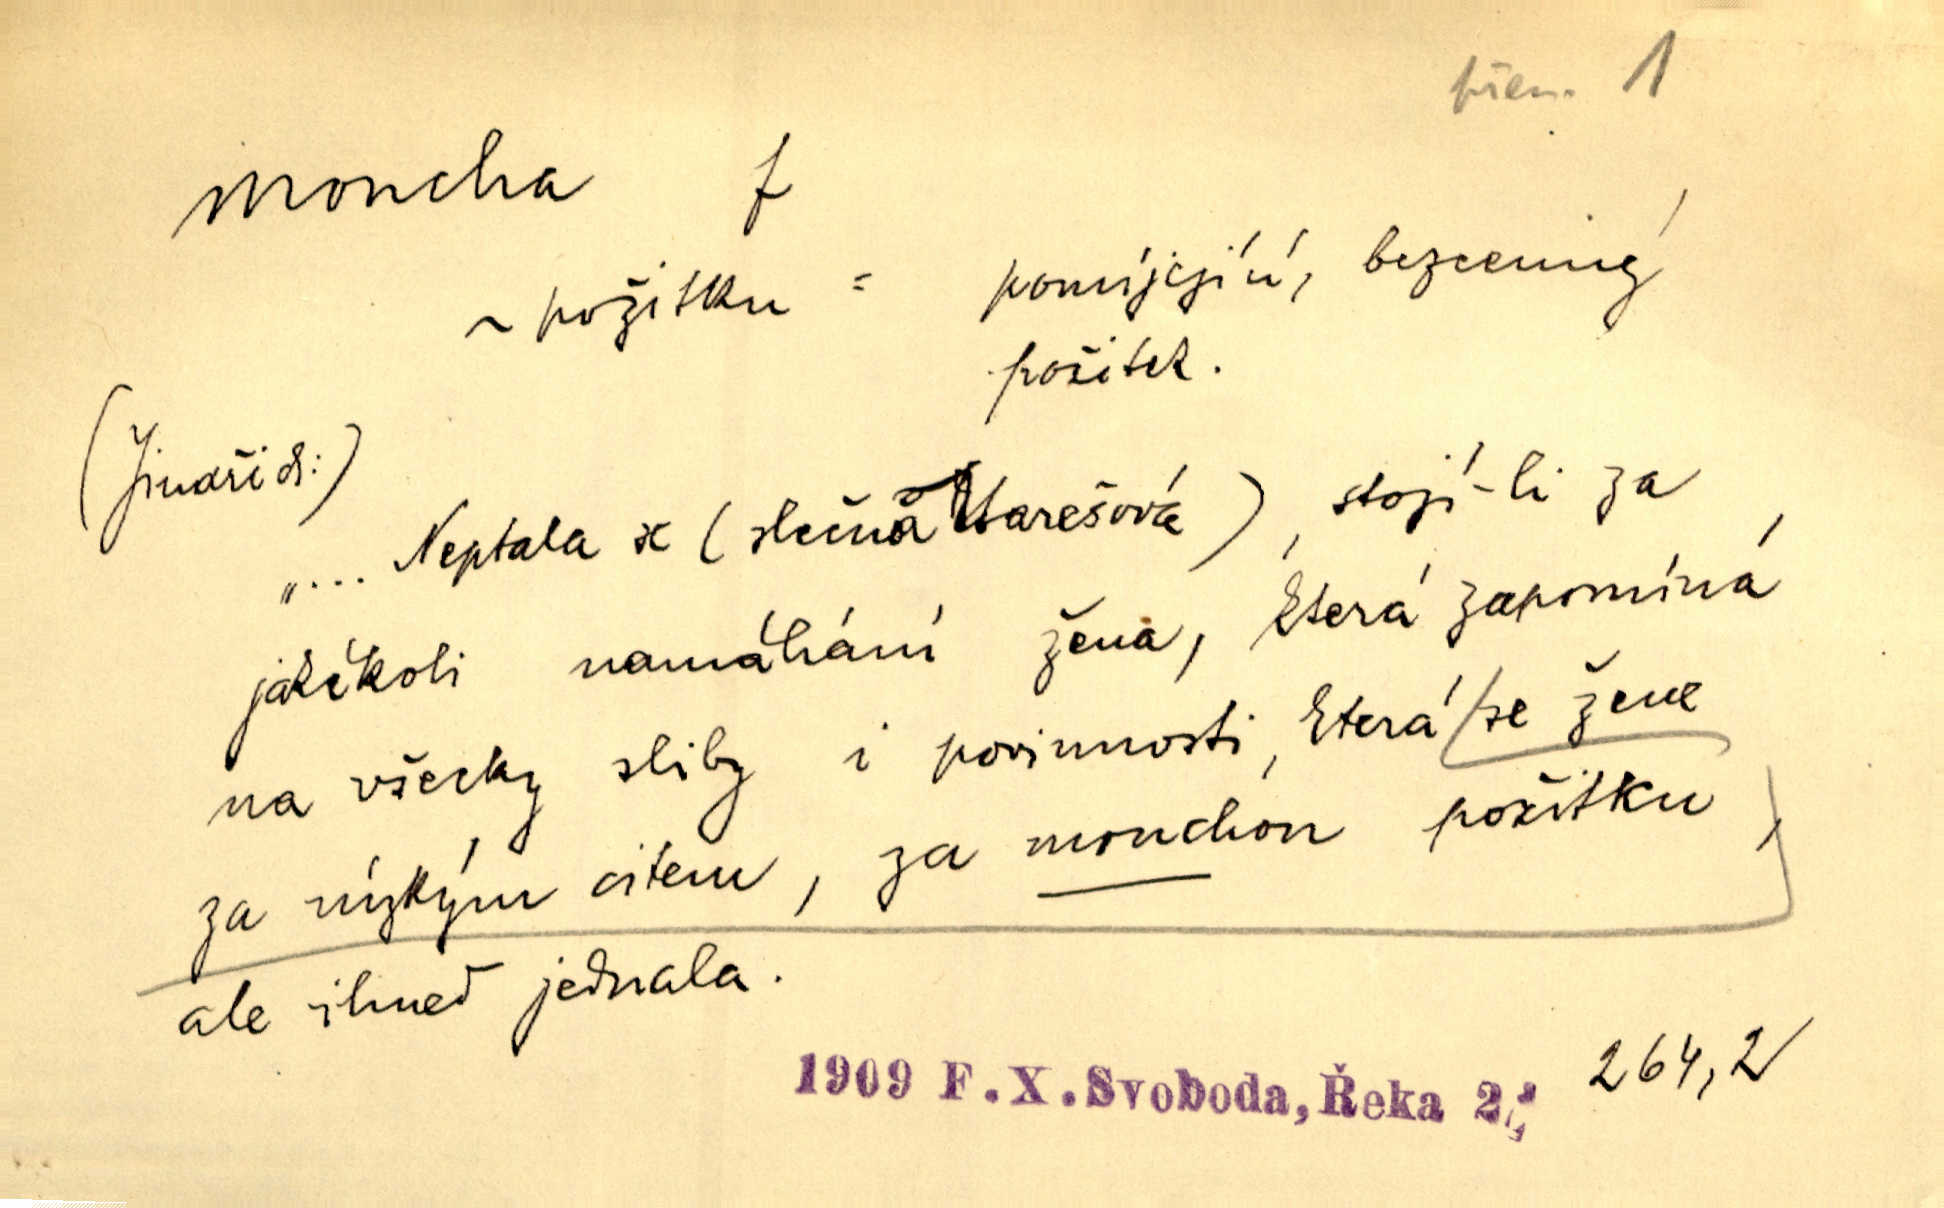 přen. 1
moucha f
~ požitku = pomíjející, bezcenný
požitek.
(Jindřich:)
„... Neptala se (slečna Marešová), stojí-li za
jakékoli namáhání žena, která zapomíná
na všecky sliby i povinnosti, která se žene
za nízkým citem, za mouchou požitku,
ale ihned jednala.
1909 F.X.Svoboda, Řeka 2,
264,2